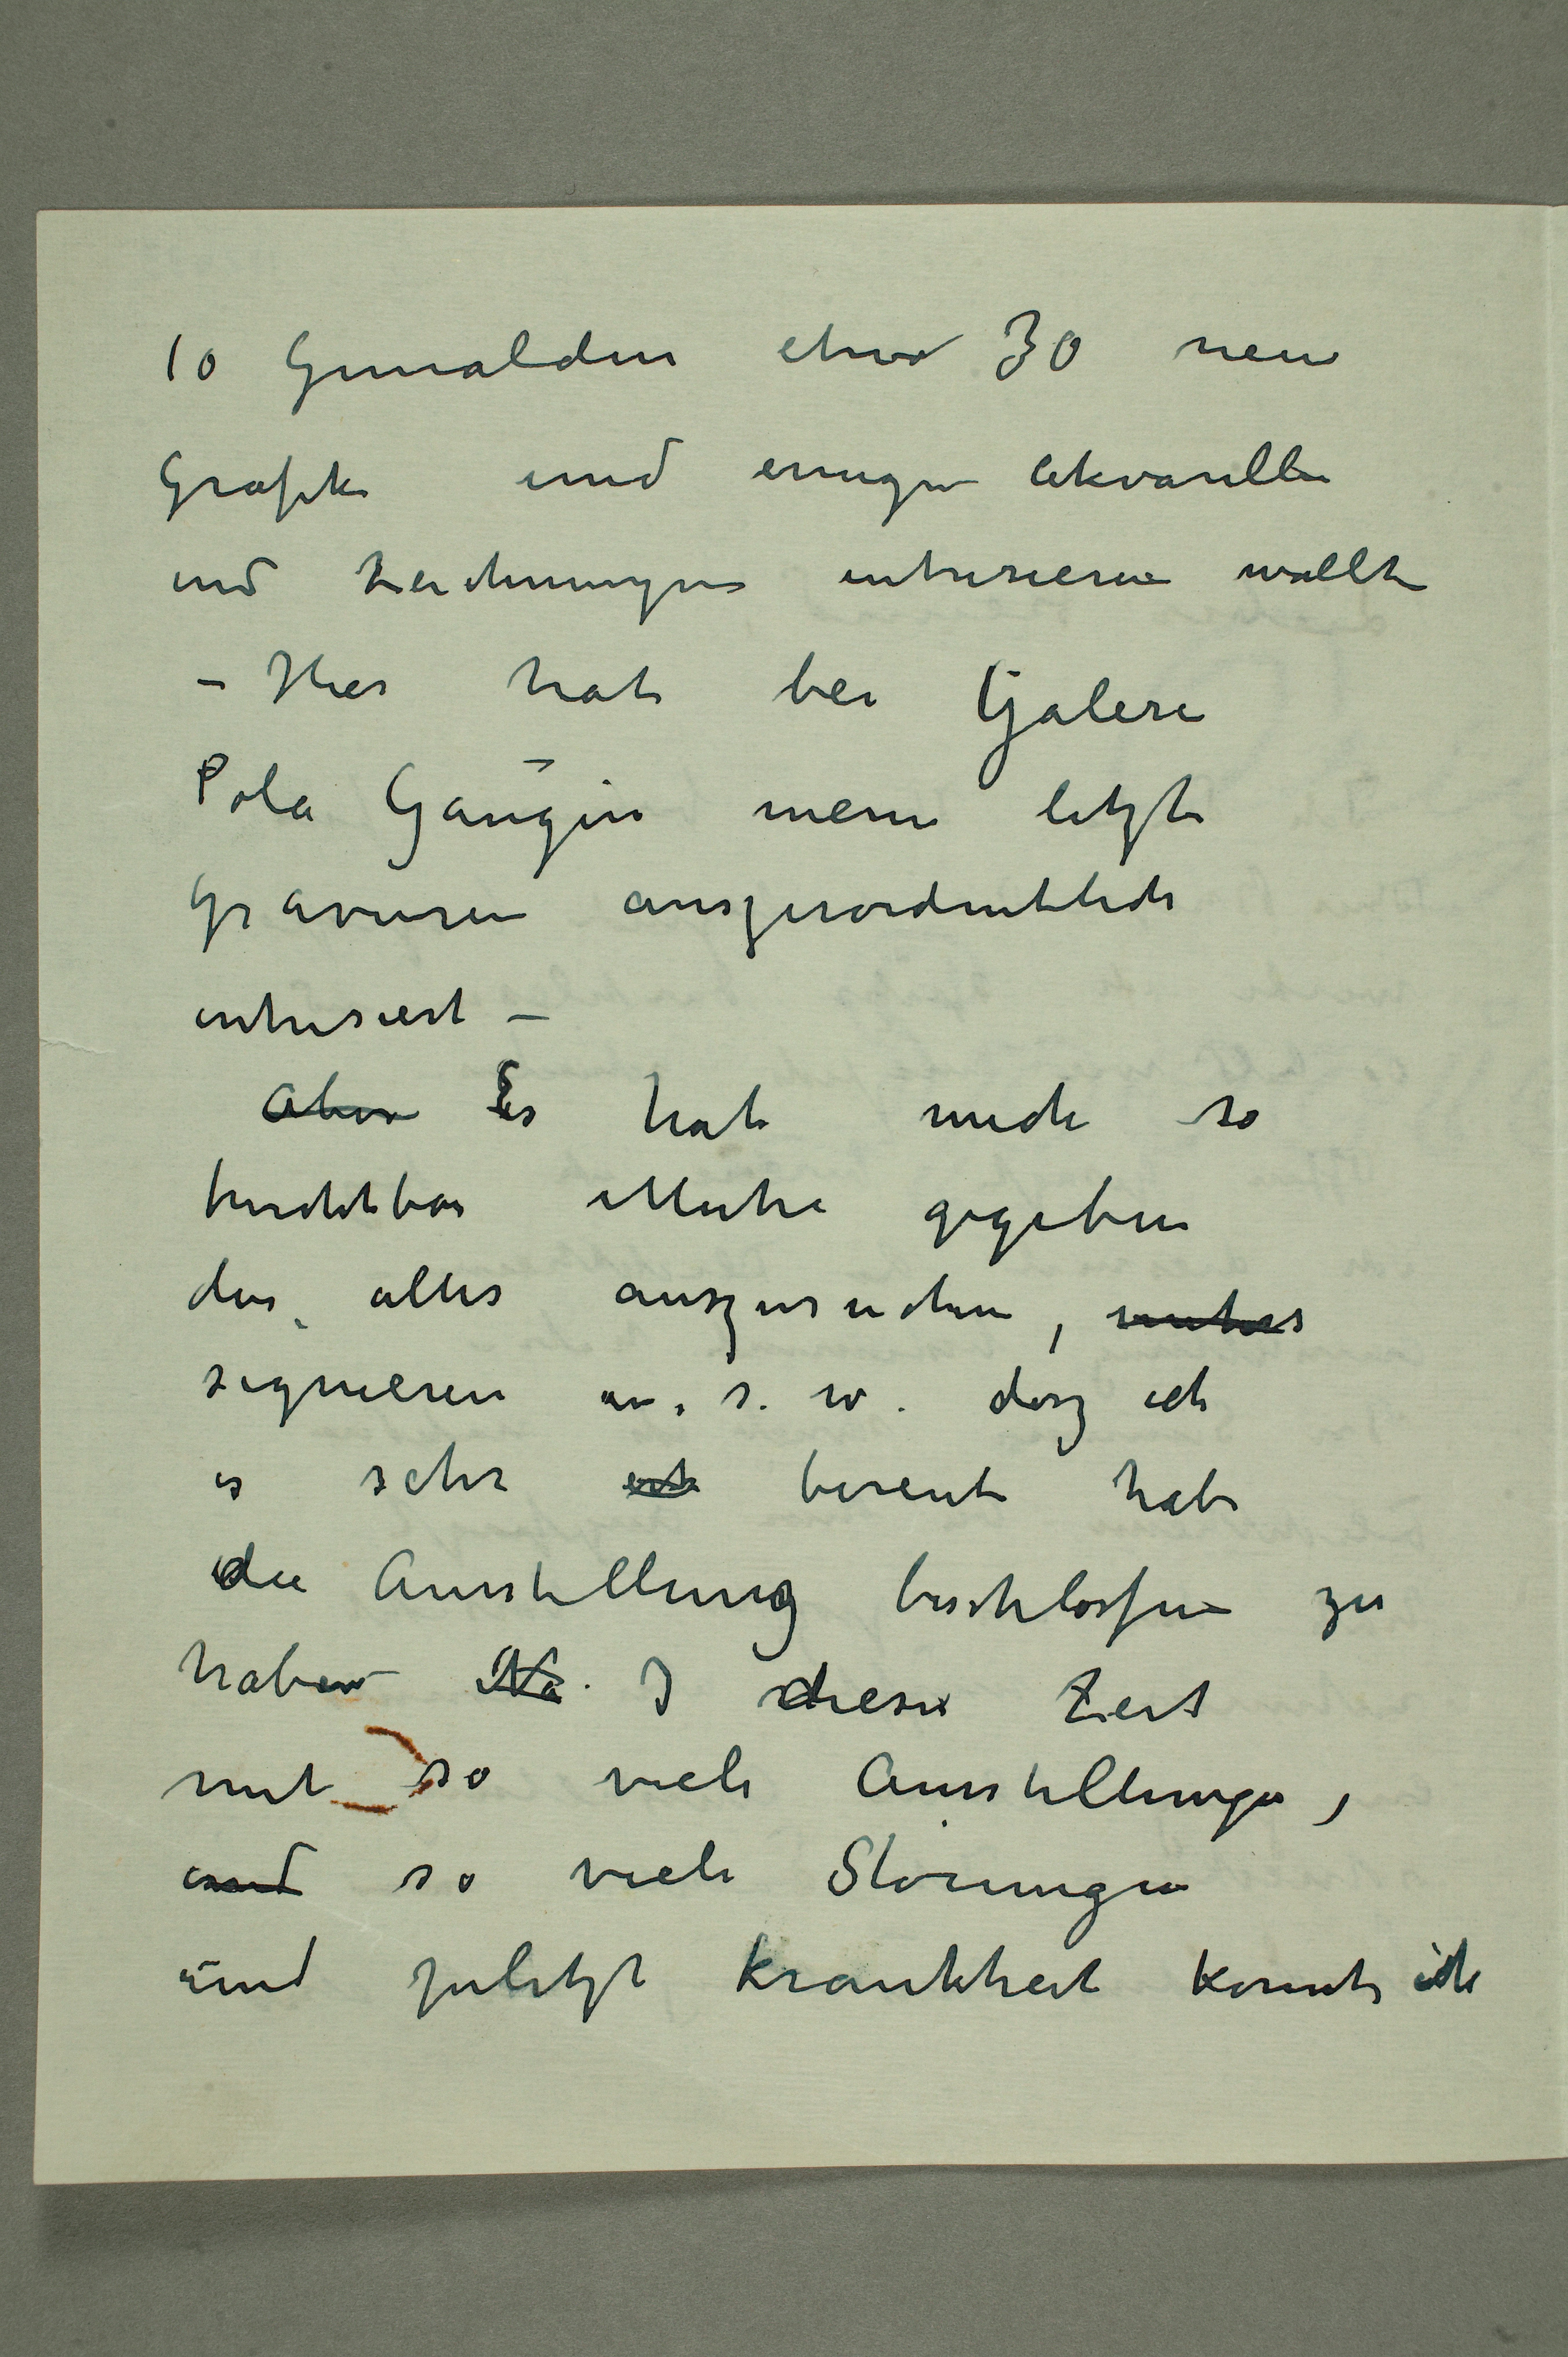 10 Gemälden etwa 30 neue
Grafike und einigen Akvarelle
und Zeichnungen intresieren wollte
– Hier hat bei Galeri
Pola Gaugin meine letzte
Gravuren auszerordentlich
intresiert –
Aber Es hat mich so
furchtbar Muhe gegeben
das alles auszusuchen,
signieren u. s. w. dasz ich
es sehr bereut habe
die Ausstellung beschlossen zu
haben Na. I diese Zeit
mit so viele Ausstellungen,
und so viele Störungen
und zuletzt Krankheit konnte ich